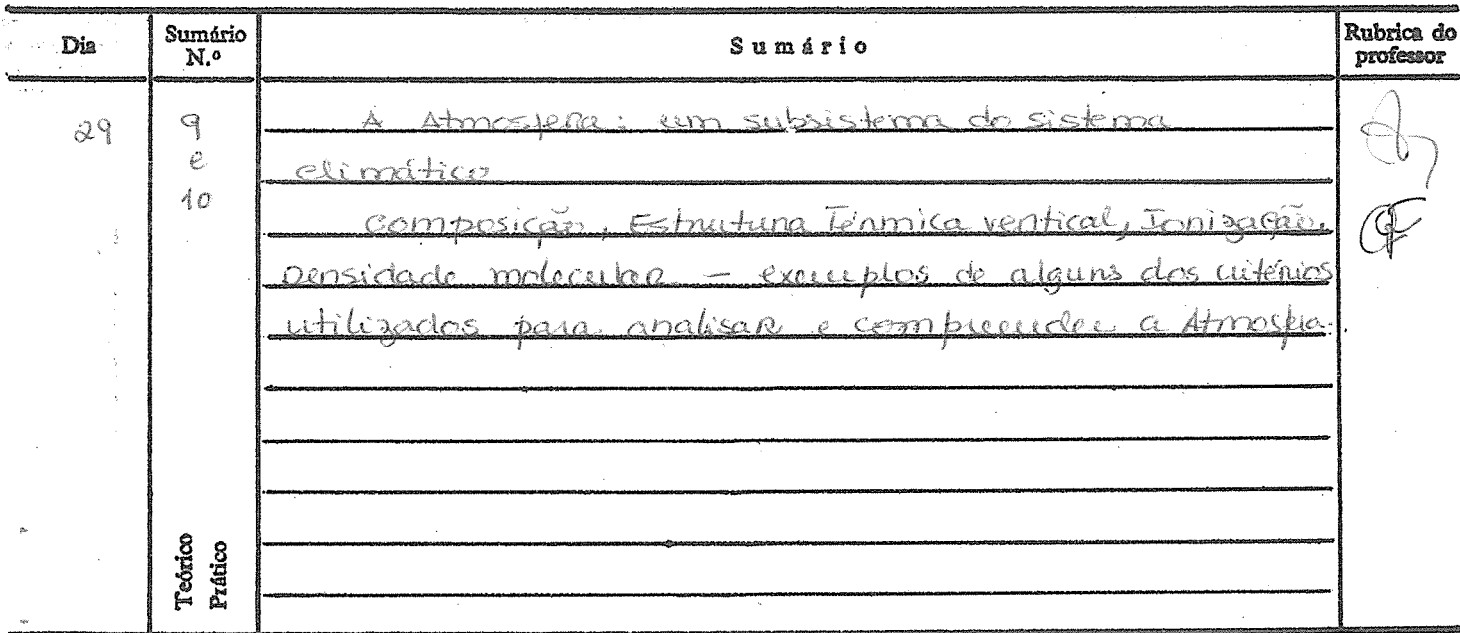 Dia Sumário N.º Sumário Rubrica do professor
29 9 e 10
A Atmosfera: um subsistema do sistema
climático
Composição, Estrutura Térmica vertical, Ionização,
Densidade molecular — exemplos de alguns dos critérios
utilizados para analisar e compreender a Atmosfera.
Teórico
Prático